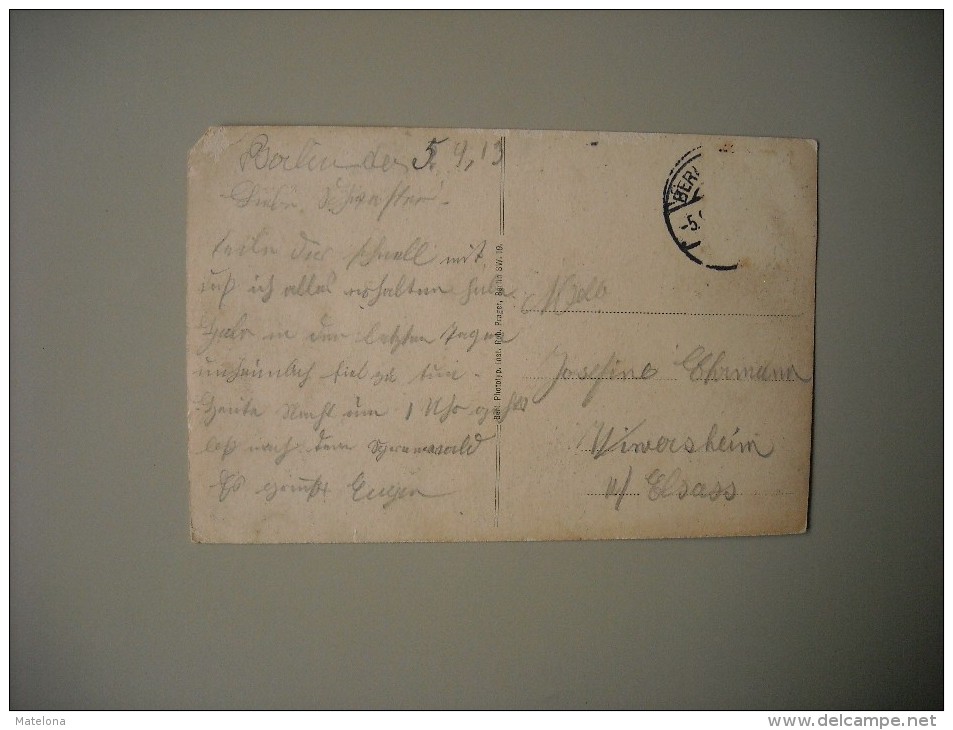 Berlin den 5.9.13
Liebe Schwester!
teile dir schnell mit
daß ich alles erhalten habe
Habe in den letzten Tagen
unheimlich viel zu tun.
Heute Nacht um 1 Uhr geht's
los nach dem Spreewald
Es grüßt Eugen
Berl. Phototyp. Inst. Rob. Prager, Berlin SW. 19.
BER
-5.
Josefine Ehrmann
Wiwersheim
u/ Elsass
Matelona
www.delcampe.net